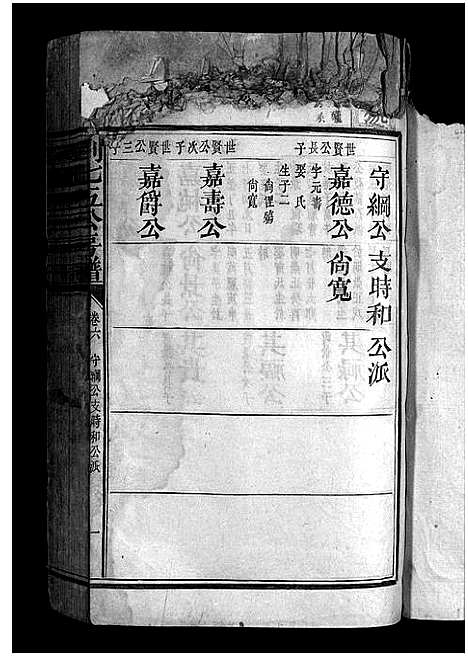 守綱公支時和公派
世賢公長子
嘉德公
字元壽
娶氏
生子二
尚寬
尚寬
世賢公次子
嘉壽公
世賢公三子
嘉爵公
卷六 守綱公支時和公派 一